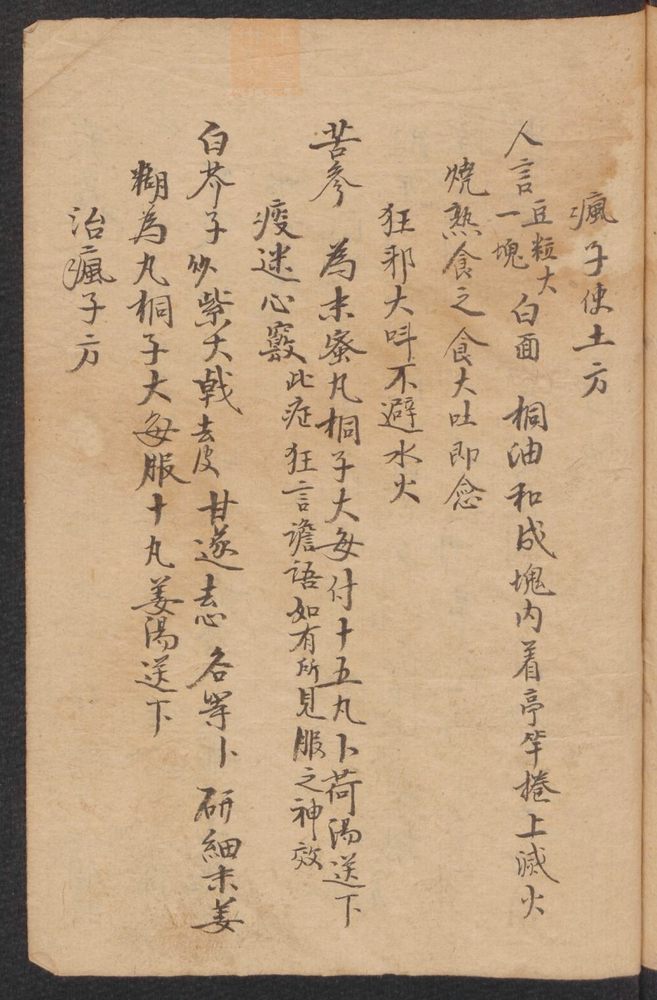 瘋子使土方
人言豆粒大一塊 白面 桐油和成塊內着亭竿捲上滅火
燒熟食之食大吐即愈
狂邪大呌不避水火
苦參 為末蜜丸桐子大每付十五丸卜荷湯送下
痰迷心竅此症狂言譫語如有所見服之神效
白芥子炒紫大戟去皮甘遂去心各等卜 研細末姜
糊為丸桐子大每服十丸姜湯送下
治瘋子方